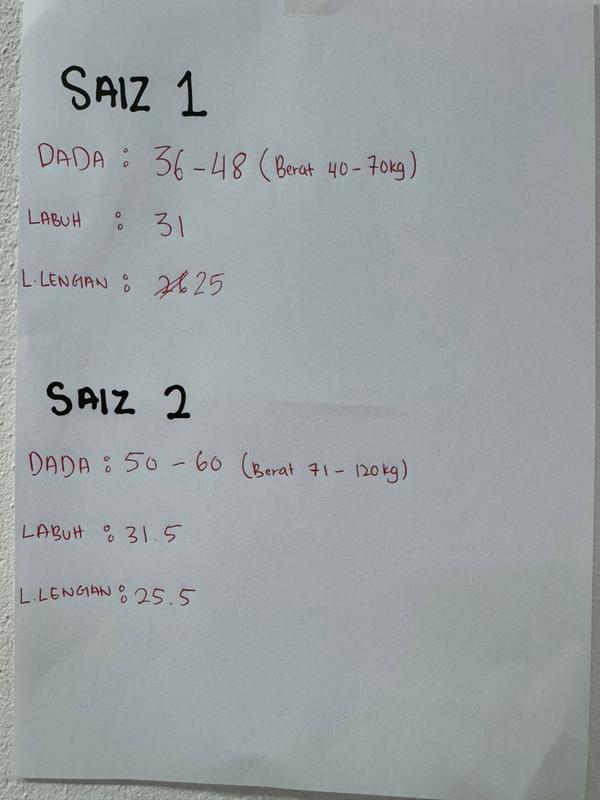 SAIZ 1
DADA : 36-48 (Berat 40-70kg)
LABUH : 31
L.LENGAN : 25
SAIZ 2
DADA : 50 - 60 (Berat 71 - 120kg)
LABUH : 31.5
L.LENGAN : 25.5